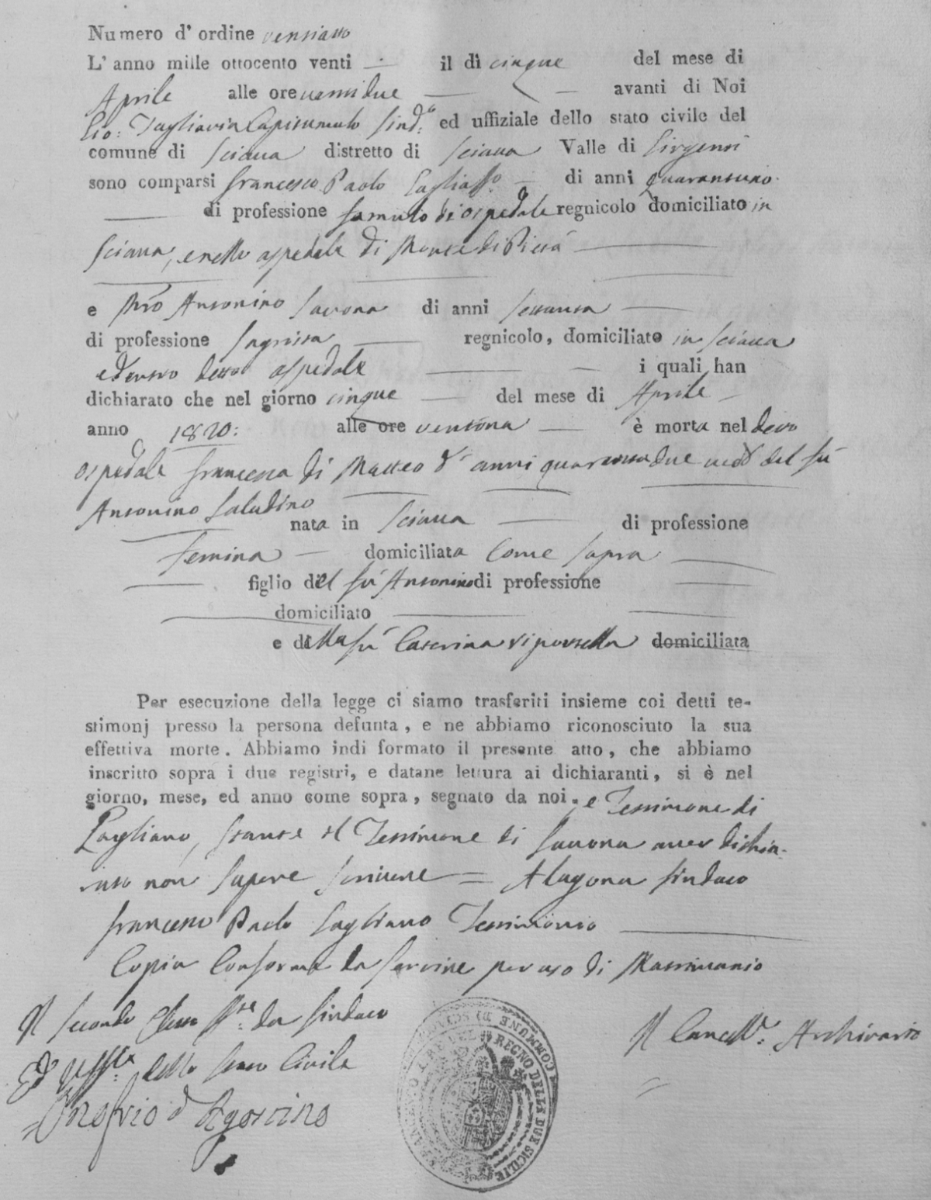 Numero d' ordine
L' anno mille ottocento venti il dì cinque del mese di
Aprile alle ore ventidue avanti di Noi
Tagliavia Sind.º ed uffiziale dello stato civile del
comune di Sciacca distretto di Sciacca Valle di Girgenti
sono comparsi Francesco Paolo di anni quarantuno
di professione famulo di ospedale regnicolo domiciliato in
Sciacca, e nello ospedale di Monte di Pietà
e Mro Antonino Savona di anni sessanta
di professione regnicolo, domiciliato in Sciacca
e dentro detto ospedale i quali han
dichiarato che nel giorno cinque del mese di Aprile
anno 1820: alle ore ventuna è morta nel detto
ospedale Francesca di Matteo d' anni quarantadue ved.ª del fù
Antonino Saladino
nata in Sciacca di professione
Femina domiciliata Come Sopra
figlio del fù Antonino di professione
domiciliato
e della fù Caterina domiciliata
Per esecuzione della legge ci siamo trasferiti insieme coi detti te-
stimonj presso la persona defunta, e ne abbiamo riconosciuto la sua
effettiva morte. Abbiamo indi formato il presente atto, che abbiamo
inscritto sopra i due registri, e datane lettura ai dichiaranti, si è nel
giorno, mese, ed anno come sopra, segnato da noi, e Testimone di
Pagliano, stante il Testimone di Savona aver dichia-
rato non sapere scrivere = Alagona Sindaco
Francesco Paolo Pagliano Testimonio
Copia Conforme da servire per uso di Matrimonio
Il Secondo Eletto da Sindaco
Ed Uff.le dello Stato Civile
Onofrio d' Agostino
Il Cancell.e Archivario
COMUNE DI SCIACCA
REGNO DELLE DUE SICILIE